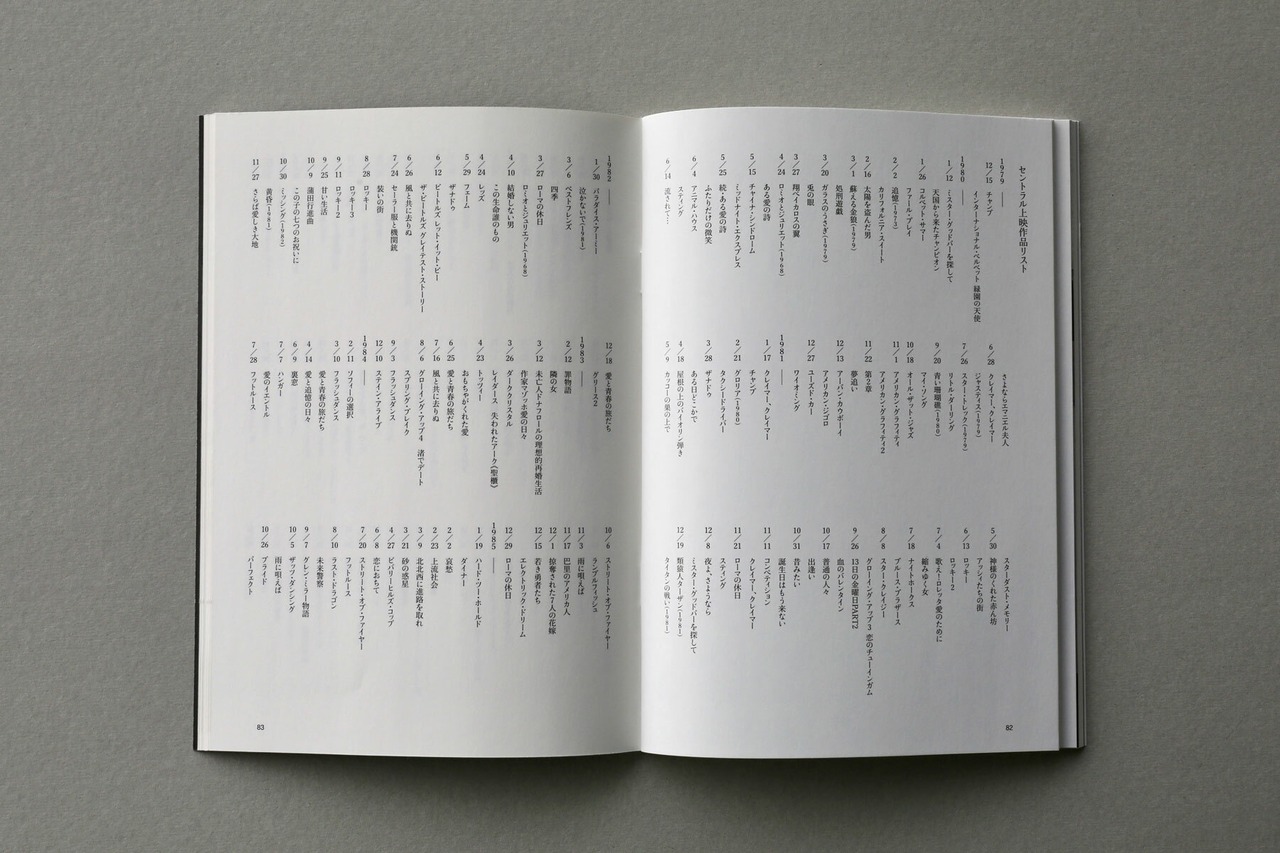 セントラル上映作品リスト
1979 ——
12/15 チャンプ
インターナショナル・ベルベット 緑園の天使
1980 ——
1/12 ミスター・グッドバーを探して
天国から来たチャンピオン
1/26 コルベット・サマー
ファール・プレイ
2/2 追憶（1973）
カリフォルニア・スイート
2/16 太陽を盗んだ男
3/1 蘇える金狼（1979）
処刑遊戯
3/20 ガラスのうさぎ（1979）
兎の眼
3/27 翔べイカロスの翼
4/24 ロミオとジュリエット（1968）
ある愛の詩
5/15 チャイナ・シンドローム
ミッドナイト・エクスプレス
5/25 続・ある愛の詩
ふたりだけの微笑
6/4 アニマル・ハウス
スティング
6/14 流されて…
さよならエマニエル夫人
6/28 クレイマー、クレイマー
ジャスティス（1979）
7/26 スター・トレック（1979）
リトル・ダーリング
9/20 青い珊瑚礁（1980）
マイ・ソング
10/18 オール・ザット・ジャズ
11/1 アメリカン・グラフィティ
アメリカン・グラフィティ2
11/22 第2章
夢追い
12/13 アーバン・カウボーイ
アメリカン・ジゴロ
12/27 ユーズド・カー
ワイオミング
1981 ——
1/17 クレイマー、クレイマー
チャンプ
2/21 グロリア（1980）
タクシードライバー
3/28 ザナドゥ
ある日どこかで
4/18 屋根の上のバイオリン弾き
5/9 カッコーの巣の上で
スターダスト・メモリー
5/30 神様のくれた赤ん坊
アッシイたちの街
6/13 ロッキー
ロッキー2
7/4 歌え！ロレッタ愛のために
縮みゆく女
7/18 ナイトホークス
ブルース・ブラザース
8/8 スター・クレイジー
グローイング・アップ3 恋のチューインガム
9/26 13日の金曜日PART2
血のバレンタイン
10/17 普通の人々
出逢い
10/31 昔みたい
誕生日はもう来ない
11/11 コンペティション
クレイマー、クレイマー
11/21 ローマの休日
スティング
12/8 夜よ、さようなら
ミスター・グッドバーを探して
12/19 類猿人ターザン（1981）
タイタンの戦い（1981）
82
1982 ——
1/30 パラダイス・アーミー
泣かないで（1981）
3/6 ベストフレンズ
四季
3/27 ローマの休日
ロミオとジュリエット（1968）
4/10 結婚しない男
この生命誰のもの
4/24 レッズ
5/29 フェーム
ザナドゥ
6/12 ビートルズ レット・イット・ビー
ザ・ビートルズ グレイテスト・ストーリー
6/26 風と共に去りぬ
7/24 セーラー服と機関銃
装いの街
8/28 ロッキー
ロッキー3
9/11 ロッキー2
9/25 甘い生活
10/9 蒲田行進曲
この子の七つのお祝いに
10/30 ミッシング（1982）
黄昏（1981）
11/27 さらば愛しき大地
12/18 愛と青春の旅だち
グリース2
1983 ——
2/12 罪物語
隣の女
3/12 未亡人ドナフロールの理想的再婚生活
作家マゾッホ愛の日々
3/26 ダーククリスタル
レイダース 失われたアーク《聖櫃》
4/23 トッツィー
おもちゃがくれた愛
6/25 愛と青春の旅だち
7/16 風と共に去りぬ
8/6 グローイング・アップ4 渚でデート
スプリング・ブレイク
9/3 フラッシュダンス
12/10 ステイン・アライブ
1984 ——
2/11 ソフィーの選択
3/10 フラッシュダンス
愛と青春の旅だち
4/14 愛と追憶の日々
6/9 裏窓
7/7 ハンガー
愛のイエントル
7/28 フットルース
10/6 ストリート・オブ・ファイヤー
ランブルフィッシュ
11/3 雨に唄えば
11/17 巴里のアメリカ人
12/1 掠奪された7人の花嫁
12/15 若き勇者たち
エレクトリック・ドリーム
12/29 ローマの休日
1985 ——
1/19 ハード・ツー・ホールド
ダイナー
2/2 哀愁
2/23 上流社会
3/9 北北西に進路を取れ
3/21 砂の惑星
4/27 ビバリーヒルズ・コップ
6/8 恋におちて
7/20 ストリート・オブ・ファイヤー
フットルース
8/10 ラスト・ドラゴン
未来警察
9/7 グレン・ミラー物語
10/5 ザッツ・ダンシング
雨に唄えば
10/26 ブライド
パーフェクト
83